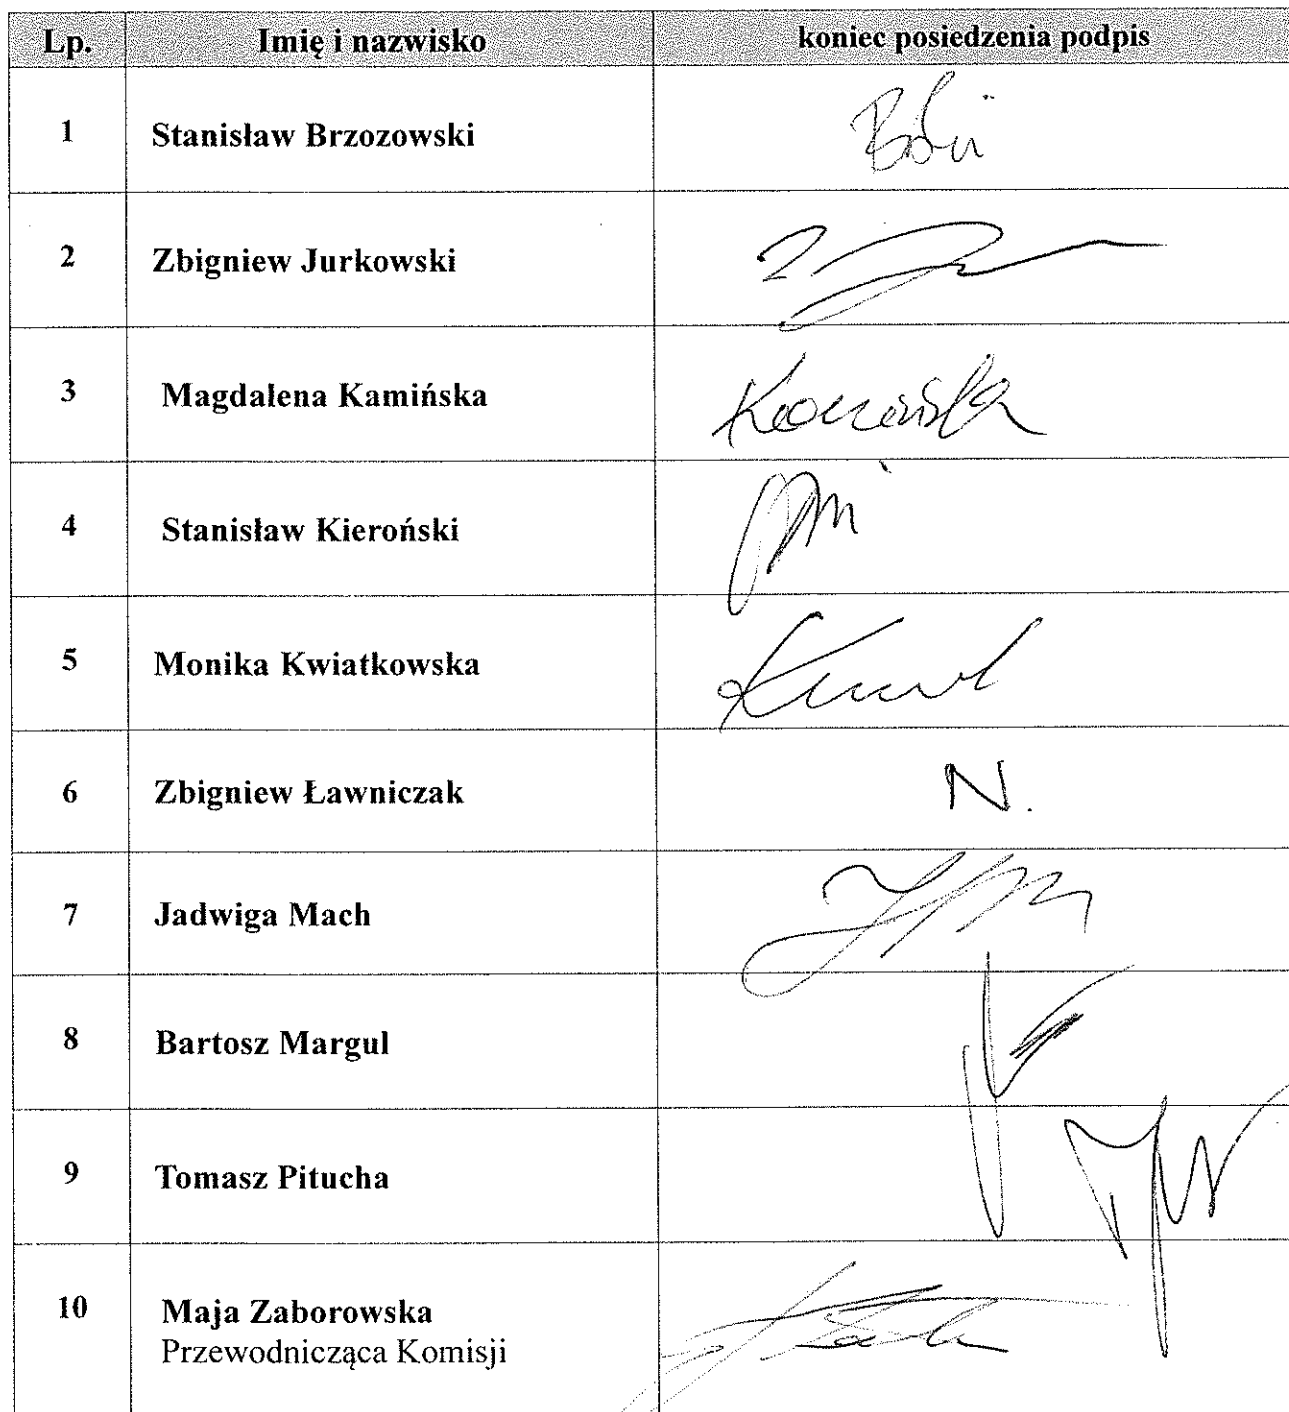 Lp. Imię i nazwisko koniec posiedzenia podpis
1 Stanisław Brzozowski
2 Zbigniew Jurkowski
3 Magdalena Kamińska Kamińska
4 Stanisław Kieroński
5 Monika Kwiatkowska
6 Zbigniew Ławniczak N.
7 Jadwiga Mach
8 Bartosz Margul
9 Tomasz Pitucha
10 Maja Zaborowska
Przewodnicząca Komisji